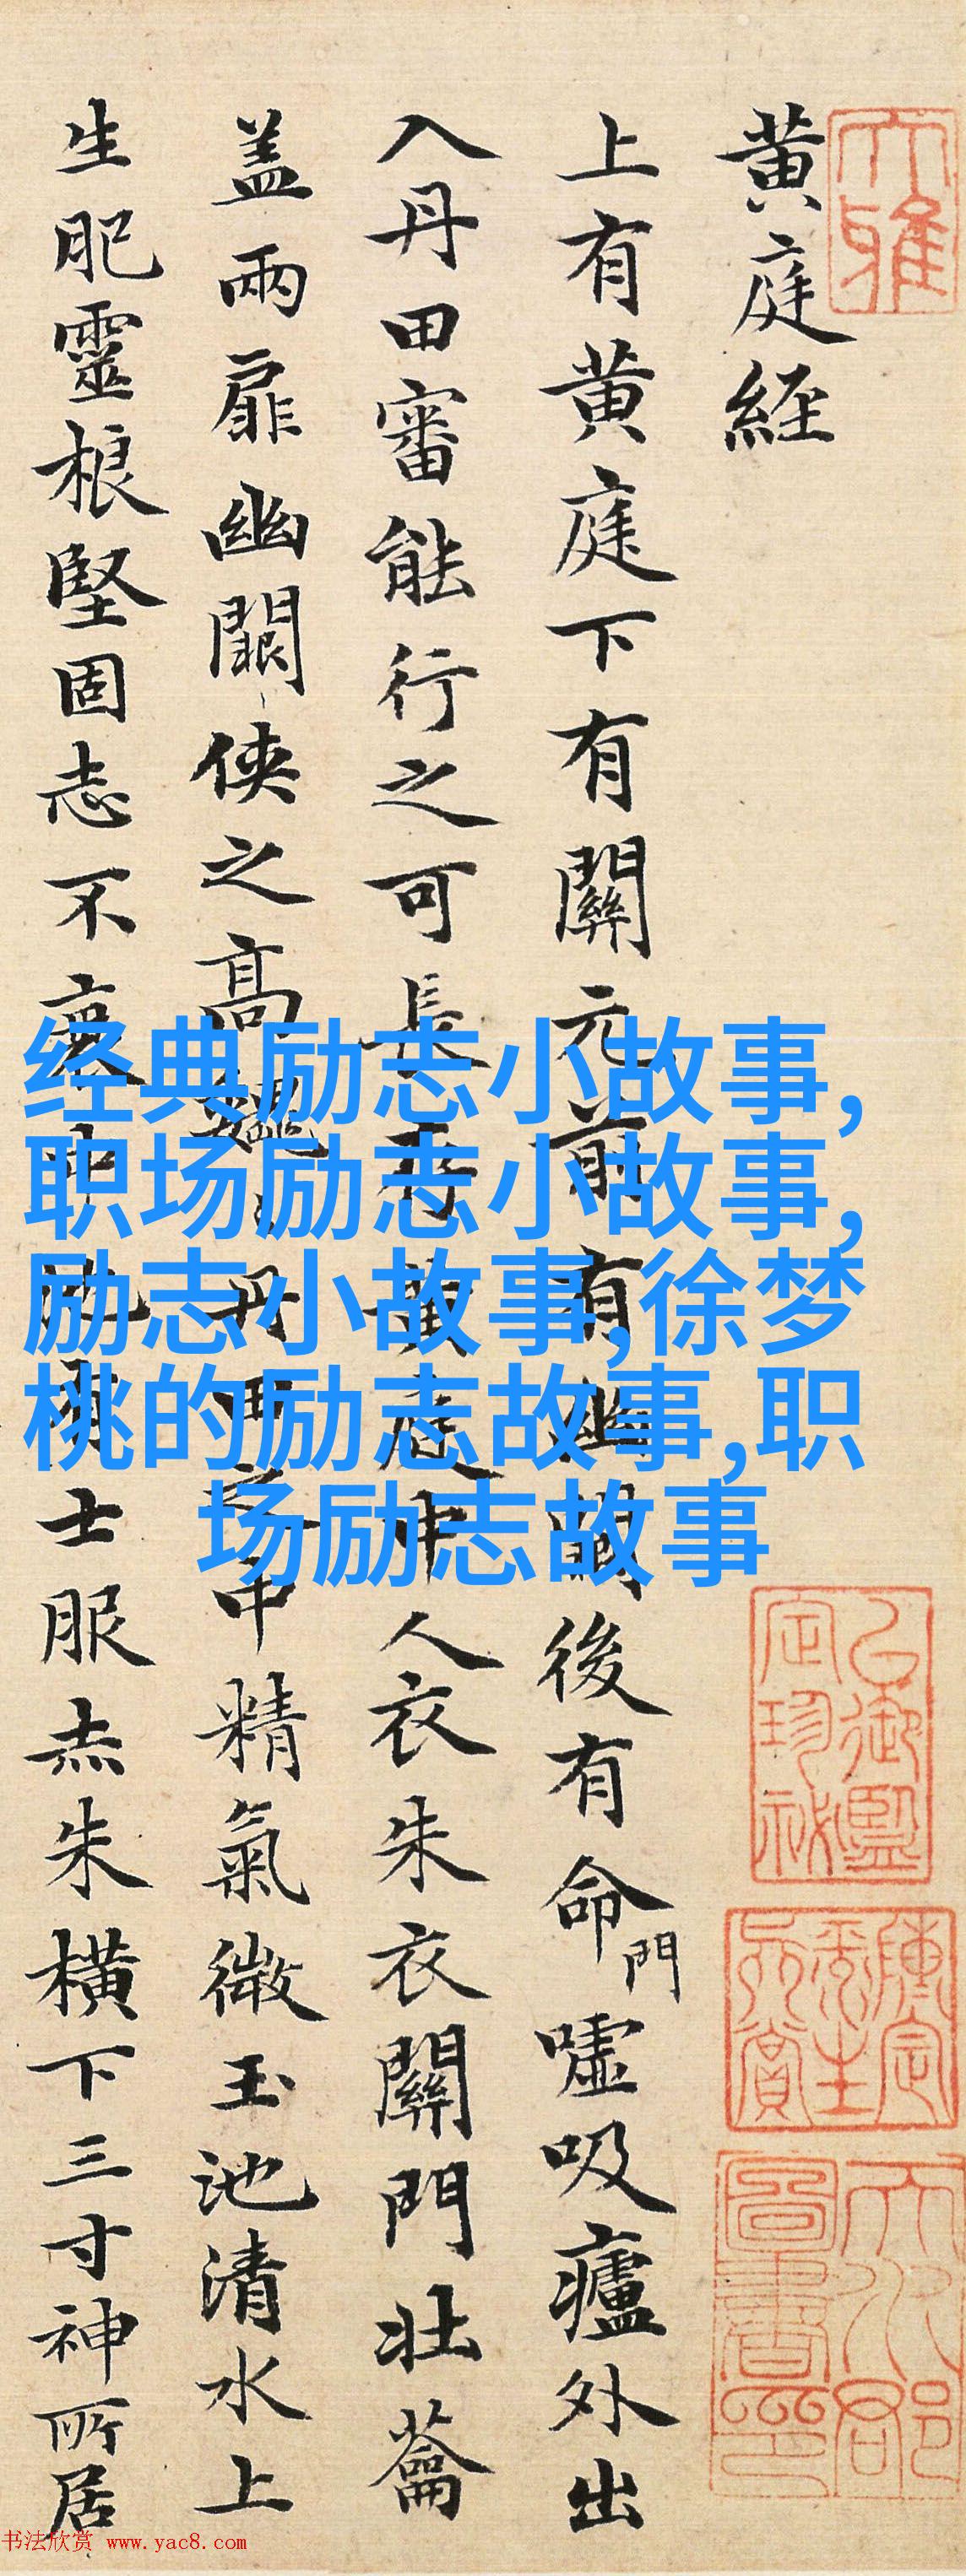 黄庭經
上有黄庭下有關元前有幽闕後有命門嘘吸廬外出
入丹田審能行之可長存黄庭中人衣朱衣關門壮蘥
盖兩扉幽闕侠之高巍丹田之中精氣微玉池清水上
生肥靈根堅固志不衰中池有士服赤朱横下三寸神所居
大雅
乙
御鑑
定珍
经典励志小故事,
职场励志小故事,
励志小故事,徐梦
桃的励志故事,职
场励志故事
书法欣赏 www.yac8.com